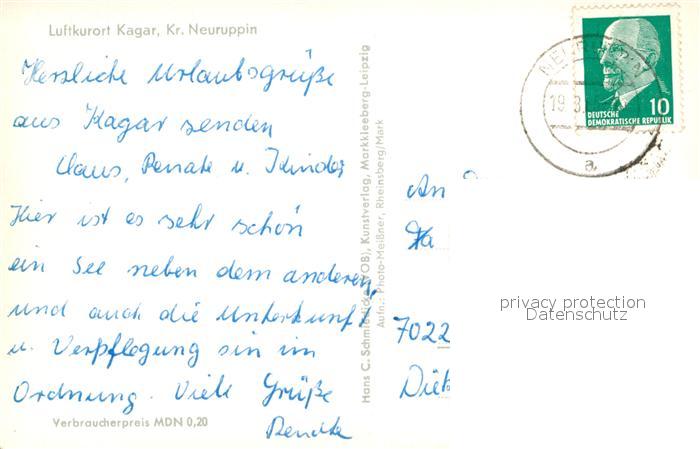 Luftkurort Kagar, Kr. Neuruppin
Herzliche Urlaubsgrüße
aus Kagar senden
Claus, Renate u. Kinder
Hier ist es sehr schön
ein See neben dem anderen,
und auch die Unterkunft
u. Verpflegung sin im
Ordnung. Viele Grüße
Renate
Verbraucherpreis MDN 0,20
Hans C. Schmiedicke (VOB), Kunstverlag, Markkleeberg-Leipzig
Aufn.: Photo-Meißner, Rheinsberg/Mark
19.8.
a
10
DEUTSCHE
DEMOKRATISCHE REPUBLIK
An
Fa
7022
privacy protection
Datenschutz